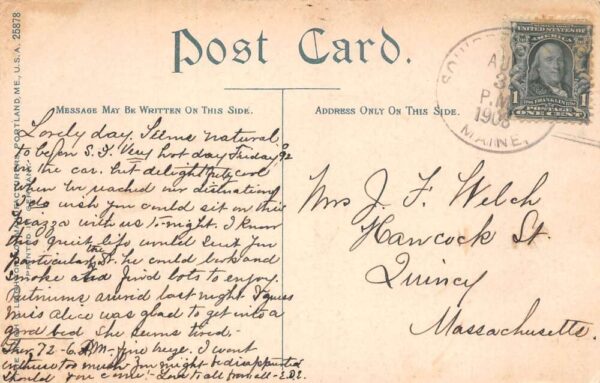 Post Card.
MESSAGE MAY BE WRITTEN ON THIS SIDE.
ADDRESS ONLY ON THIS SIDE.
PORTLAND, ME., U.S.A. 25878
UNITED STATES OF AMERICA
FRANKLIN
POSTAGE
1 ONE CENT 1
AU
3
P.M
1908
MAINE.
Lovely day. Seems natural
to be on S.I. Very hot day Friday 92
in the car. but delightfully cool
when we reached our distination
I do wish you could sit on this
piazza with us to-night. I know
this quiet life would suit you
particularly the St. he could look and
smoke and find lots to enjoy.
arrived last night I guess
Miss Alice was glad to get into a
good bed she seems tired.-
Ther, 72 - 6. P.M - fine I wont
too much You might be disappointed
should you come - Love to all from
Mrs J. F. Welch
Hancock St.
Quincy
Massachusetts.